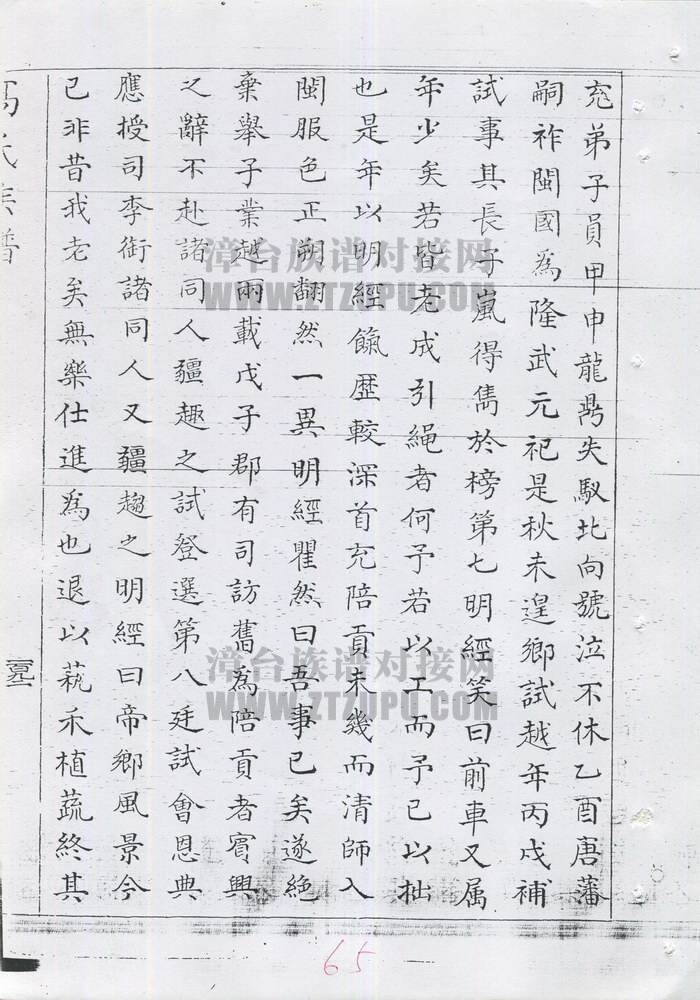 充弟子員甲申龍鼎失馭北向號泣不休乙酉唐藩
嗣祚閩國為隆武元祀是秋未遑鄉試越年丙戌補
試事其長子嵐得雋於榜第七明經笑曰前車又属
年少矣若皆老成引繩者何予若以工而予已以拙
也是年以明經餼歷較深首充陪貢未幾而清師入
閩服色正朔翻然一異明經瞿然曰吾事已矣遂絕
棄舉子業越兩載戊子郡有司訪舊為陪貢者賓興
之辭不赴諸同人彊趣之試登選第八廷試會恩典
應授司李銜諸同人又彊趨之明經曰帝鄉風景今
已非昔我老矣無樂仕進為也退以蓺禾植蔬終其
高氏族譜
漳台族谱对接网
WWW.ZTZUPU.COM
漳台族谱对接网
WWW.ZTZUPU.COM
65